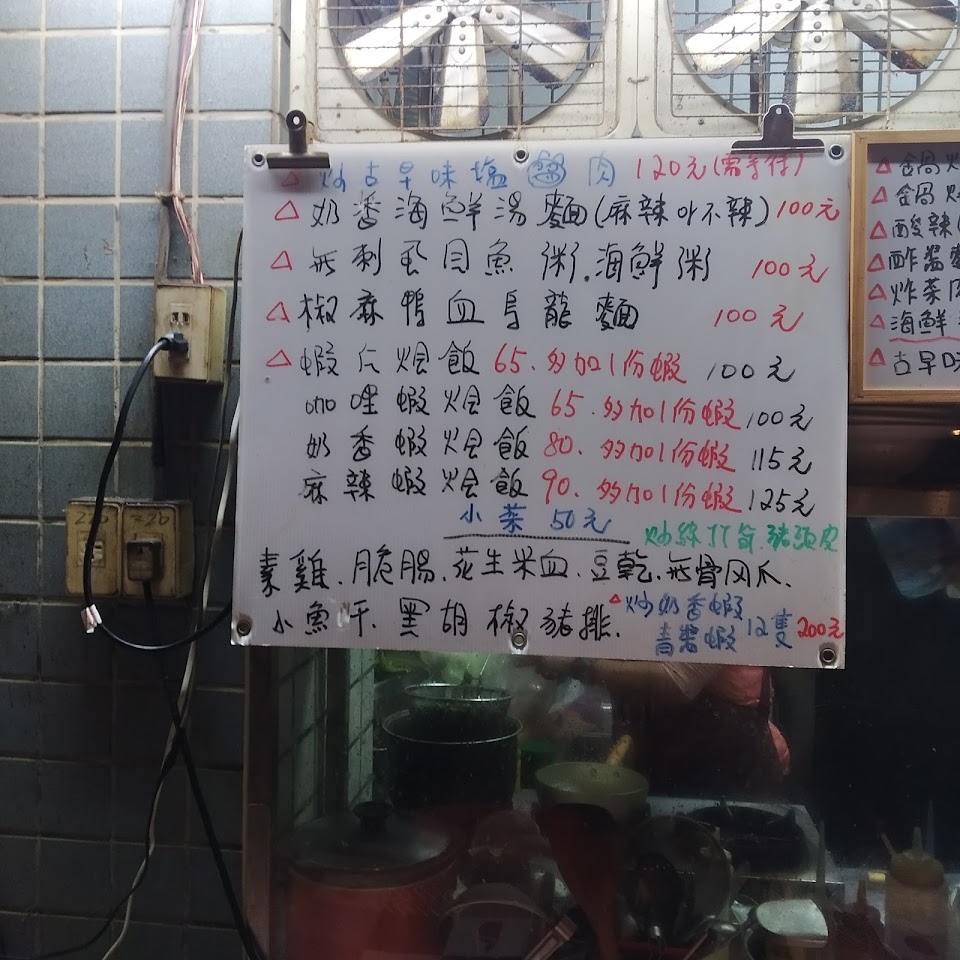 △ 炒古早味塩鹹肉 120元(需等待)
△ 奶香海鮮湯麵(麻辣or不辣) 100元
△ 無刺虱目魚粥.海鮮粥 100元
△ 椒麻鴨血烏龍麵 100元
△ 蝦仁烩飯 65.多加1份蝦 100元
咖哩蝦烩飯 65.多加1份蝦 100元
奶香蝦烩飯 80.多加1份蝦 115元
麻辣蝦烩飯 90.多加1份蝦 125元
小菜 50元
炒絲竹筍.豬頭皮
素雞.脆腸.花生米血.豆乾.無骨风爪.
小魚干.黑胡椒豬排.
△炒奶香蝦
青醬蝦 12隻 200元
△ 鍋
△ 鍋
△ 酸辣
△ 炸醬
△ 炸菜肉
△ 海鮮
△ 古早味
220
220